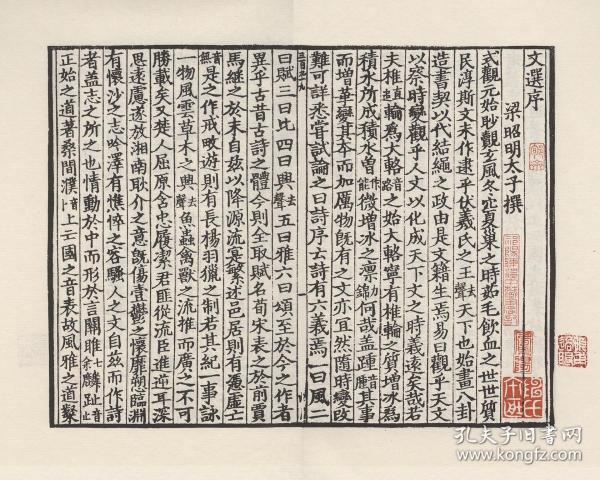 文選序
梁昭明太子撰
式觀元始眇觀玄風冬穴夏巢之時茹毛飲血之世世質
民淳斯文未作逮乎伏羲氏之王去聲天下也始畫八卦
造書契以代結繩之政由是文籍生焉易曰觀乎天文
以察時變觀乎人文以化成天下文之時義遠矣哉若
夫椎輪爲大輅音路之始大輅寧有椎輪之質增冰爲
積水所成積水曾能微增冰之凛何哉蓋踵其事
而增華變其本而加厲物既有之文亦宜然隨時變改
難可詳悉嘗試論之曰詩序云詩有六義焉一曰風二
曰賦三曰比四曰興去聲五曰雅六曰頌至於今之作者
異乎古昔古詩之體今則全取賦名荀宋表之於前賈
馬繼之於末自兹以降源流寔繁述邑居則有憑虛亡
音無是之作戒畋遊則有長楊羽獵之制若其紀一事詠
一物風雲草木之興去聲魚蟲禽獸之流推而廣之不可
勝載矣又楚人屈原含忠履潔君匪從流臣進逆耳深
思遠慮遂放湘南耿介之意既傷壹鬱之懷靡愬臨淵
有懷沙之志吟澤有憔悴之容騷人之文自兹而作詩
者蓋志之所之也情動於中而形於言關雎七余麟趾音止
正始之道著桑間濮音卜上亡國之音表故風雅之道粲
孔夫子旧书网
www.kongfz.com